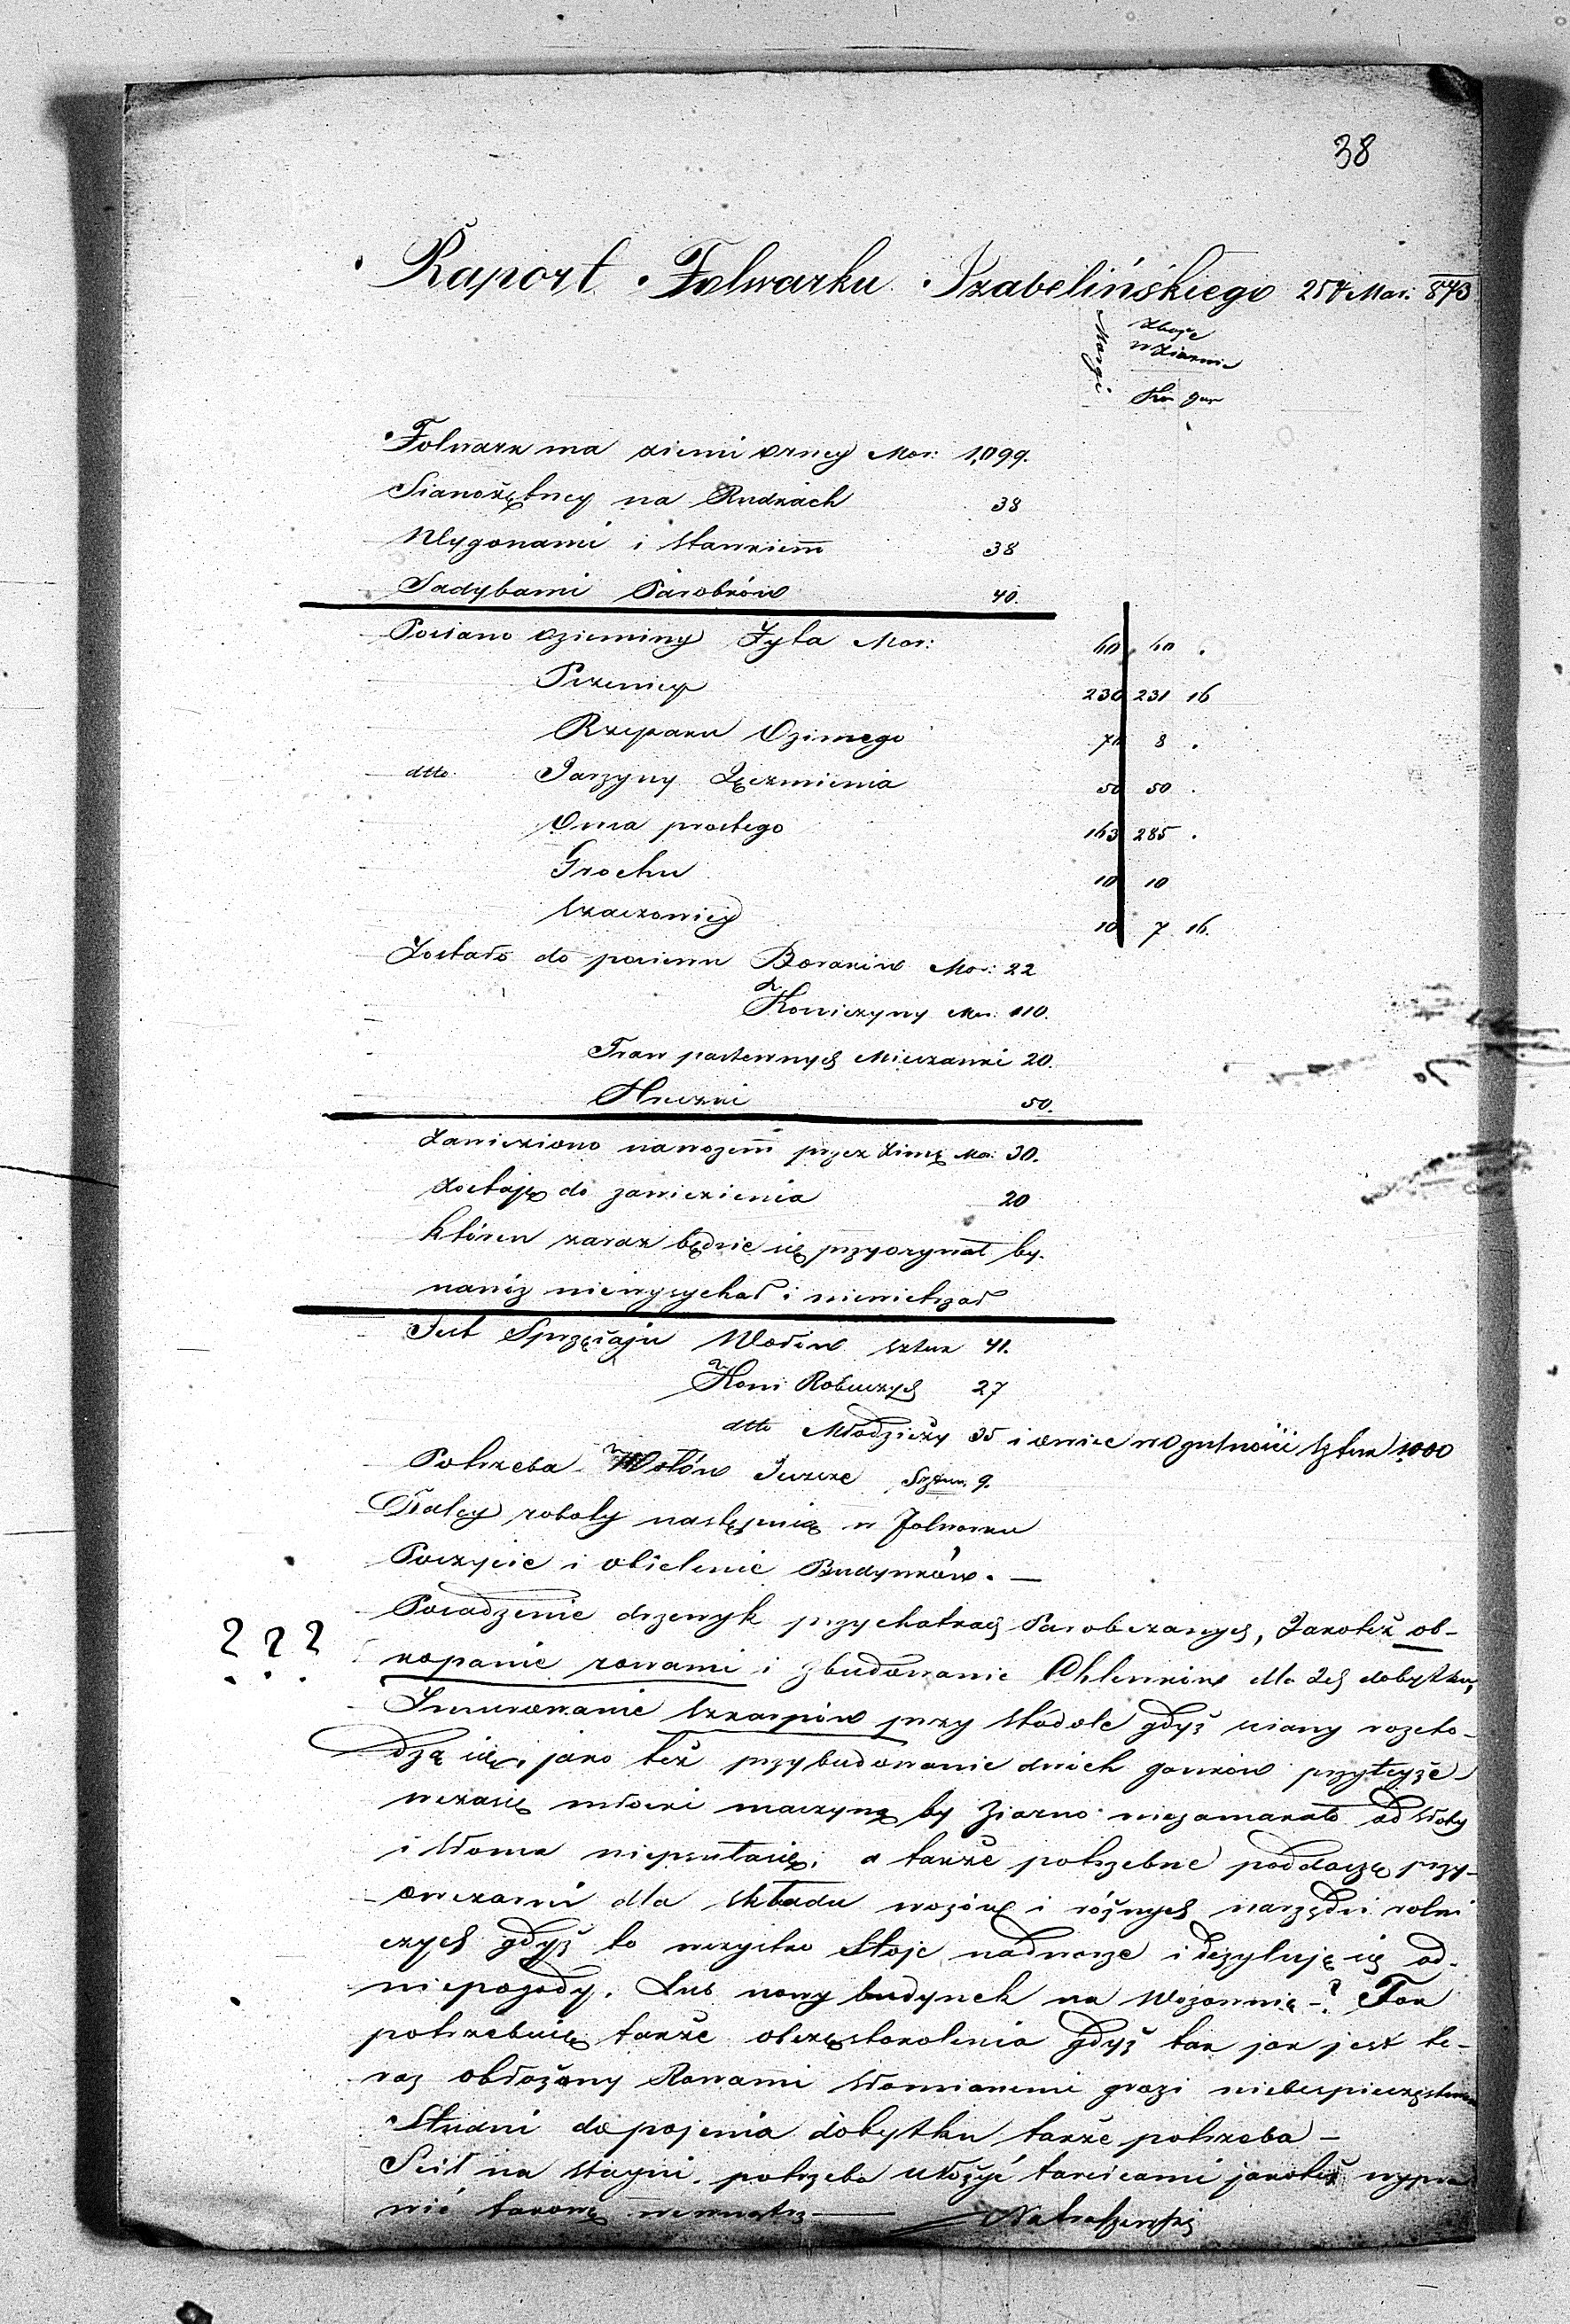 38
Raport Folwarku Izabelińskiego 257 Mar: 873
Morgi
Zboże
w Ziarnie
Kor gar
Folwark ma ziemi orney Mor: 1,099.
Sianożętney na Rudkach 38
Wygonami i stawkiem 38
Sadybami Parobków 40.
Posiano Ozieminy Żyta Mor: 60 60 .
Pszenicy 230 231 16
Rzepaku Ozimego 76 8 .
dtto Jarzyny Jęczmienia 50 50 .
Owsa prostego 163 285 .
Grochu 10 10
Szaczowicy 10 7 16.
Zostało do posiewu Boraków Mor: 22
Koniczyny Mor: 110.
Traw pastewnych Mieszanki 20.
Hreczki 50.
Zawieziono nawozem przez Zimę Mor: 30.
Zostaję do zawiezienia 20
któren zaraz będzie się przyorywał by
nawóz niewysychał i niewietrzał
Jest Sprzężaju Wołów sztuk 41.
Koni Roboczych 27
dtto Młodzieży 35 i owiec w Ogulności Sztuk 1000
Potrzeba Wołów Jeszcze Sztuk. 9.
Dalej roboty następnie w Folwarku
Poszycie i obielenie Budynków. —
Posadzenie drzewyk przychatrach Parobczanych, Jakoteż ob-
??? kopanie rowami i zbudowanie Chlewków dla Ich dobytku,
Zmurowanie szkarpów przy stodole gdyż sciany rozcho-
dzą się, jako też przybudowanie dwóch ganków przytejże
wczasie młocki maszyną by Ziarno niezamakało od słoty
i słoma niepsułasię; a także potrzebne poddasze przy
owczarni dla składu wozów i różnych narzędzi rolni
czych gdyż to wszystko stoje nadworze i dezyluję się od
niepogody. Lub nowy budynek na Wozownię -? Tok
potrzebuię także obczęstokolenia gdyż tak jak jest te-
raz obłożony Kowami słomianemi grozi niebespieczęstwem
Studni do pojenia dobytku także potrzeba -
Sót na stayni, potrzeba ułożyć tarcicami jakoteż wypra
wić takowę wewnątrz —